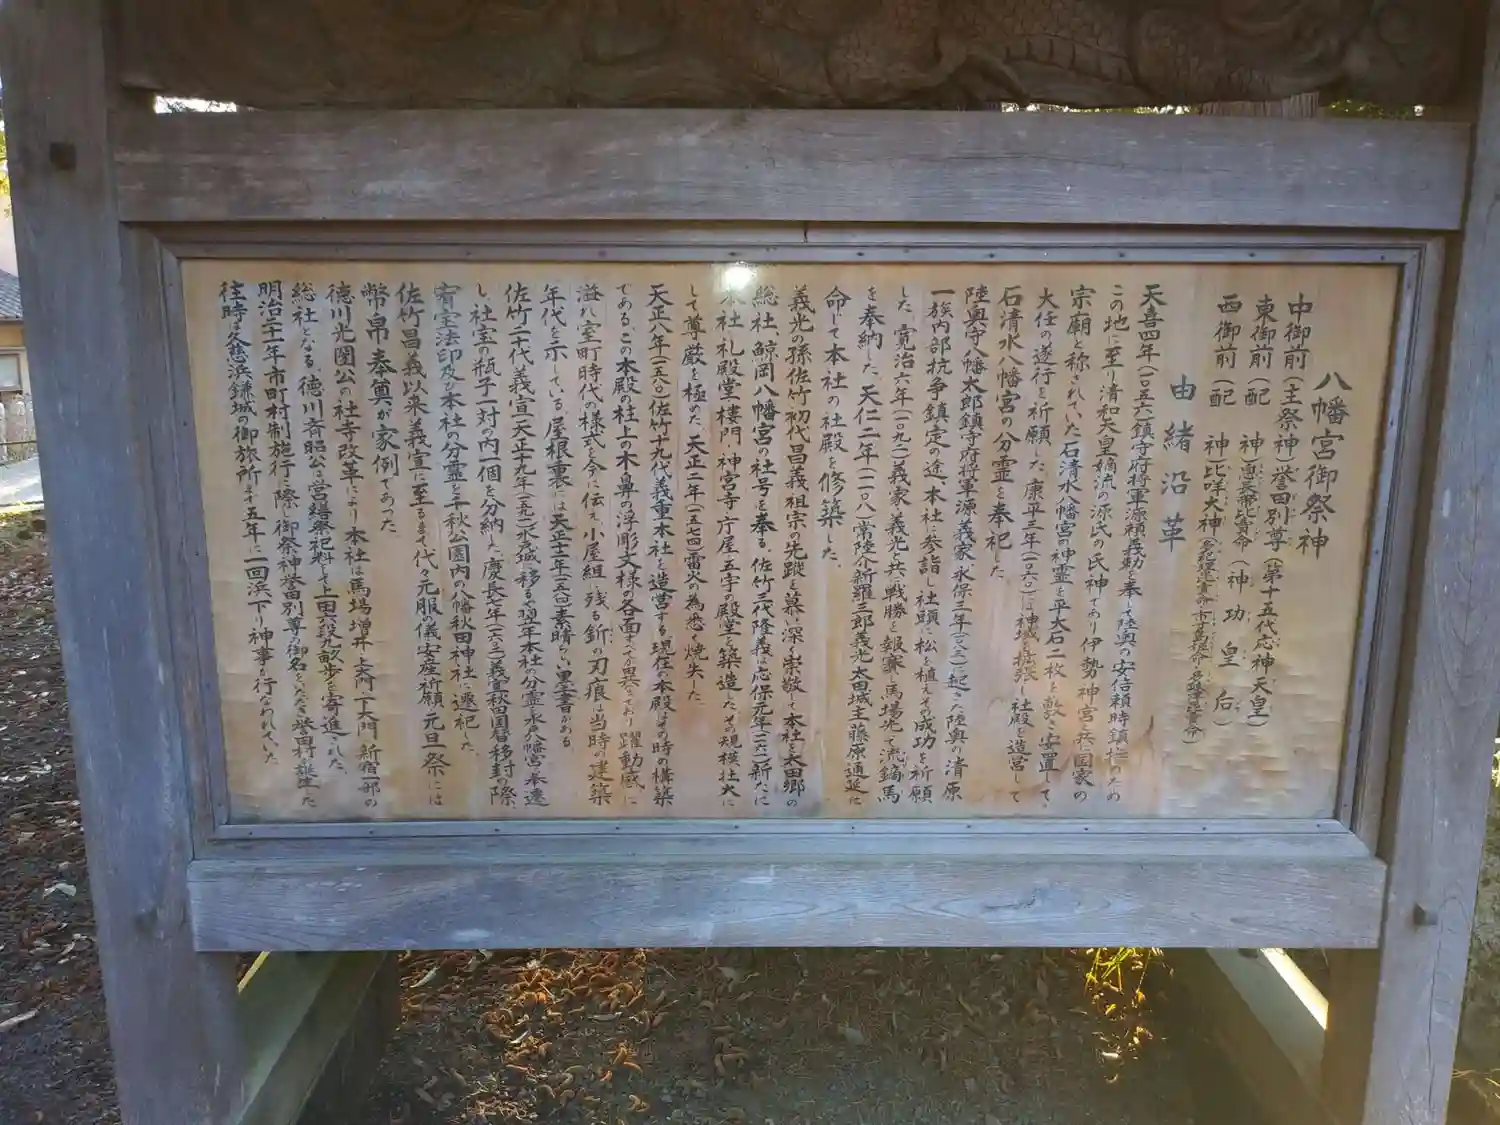 八幡宮御祭神
中御前(主祭神)誉田別尊(第十五代応神天皇)
東御前(配 神)息長帯比賣命(神功皇后)
西御前(配 神)比咩大神
由緒沿革
天喜四年(一〇五六)鎮守府将軍源頼義勅を奉して陸奥の安倍頼時鎮撫のため
この地に至り清和天皇嫡流の源氏の氏神であり伊勢神宮と共に国家の
宗廟と称されていた石清水八幡宮の神霊を平大石二枚を敷き安置して
大任の遂行を祈願した康平三年(一〇六〇)には神域を拡張し社殿を造営して
石清水八幡宮の分霊を奉祀した
陸奥守八幡太郎鎮守府将軍源義家、永保三年(一〇八三)に起きた陸奥の清原
一族内部抗争鎮定の途、本社に参詣し社頭に松を植えその成功を祈願
した、寛治六年(一〇九二)義家、義光と共に戦勝を報賽し馬場先で流鏑馬
を奉納した、天仁二年(一一〇八)常陸介新羅三郎義光太田城主藤原通延に
命じて本社の社殿を修築した、
義光の孫佐竹初代昌義祖宗の先蹤を慕い深く崇敬して本社を太田郷の
総社、鯨岡八幡宮の社号を奉る、佐竹三代隆義は応保元年(一一六一)新たに
本社、礼殿堂、楼門、神宮寺、庁屋、五宇の殿堂を築造したその規模壮大に
して尊厳を極めた、天正二年(一五七四)雷火の為悉く焼失した
天正八年(一五八〇)佐竹十九代義重本社を造営する、現在の本殿はその時の構築
である、この本殿の柱上の木鼻の浮彫文様の各面すべて異なっており躍動感に
溢れ室町時代の様式を今に伝え小屋組に残る釿の刃痕は当時の建築
年代を示している、屋根裏には天正十二年(一五八四)素晴らしい墨書がある
佐竹二十代義宣(天正十九年(一五九一)水戸城へ移るや翌年本社の分霊を水戸八幡宮へ奉遷
し、社宝の瓶子一対の内一個を分納した、慶長七年(一六〇二)義宣秋田国替移封の際
宥宝法印及び本社の分霊を千秋公園内の八幡秋田神社に遷祀した、
佐竹昌義以来義宣に至るまで代々元服の儀、安産祈願、元旦祭には
幣帛奉奠が家例であった
徳川光圀公の社寺改革により本社は馬場、増井、上大門、下大門、新宿一部の
総社となる、徳川斉昭公は営繕祭祀料として上田六段九畝歩を寄進された、
明治二十二年市町村制施行に際し御祭神誉田別尊の御名をいただき誉田村が誕生した
往時は久慈浜鎌城の御旅所まで五年に一回浜下り神事が行なわれていた